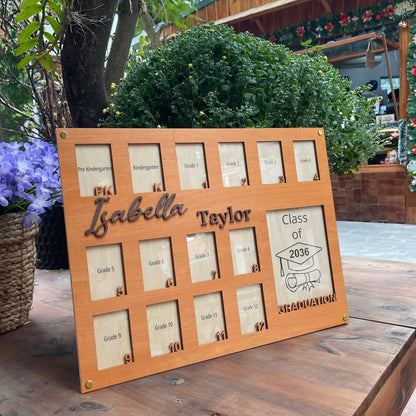 Pre Kindergarten
PK
Kindergarten
K
Grade 1
1
Grade 2
2
Grade 3
3
Grade 4
4
Isabella Taylor
Grade 5
5
Grade 6
6
Grade 7
7
Grade 8
8
Class of
2036
GRADUATION
Grade 9
9
Grade 10
10
Grade 11
11
Grade 12
12